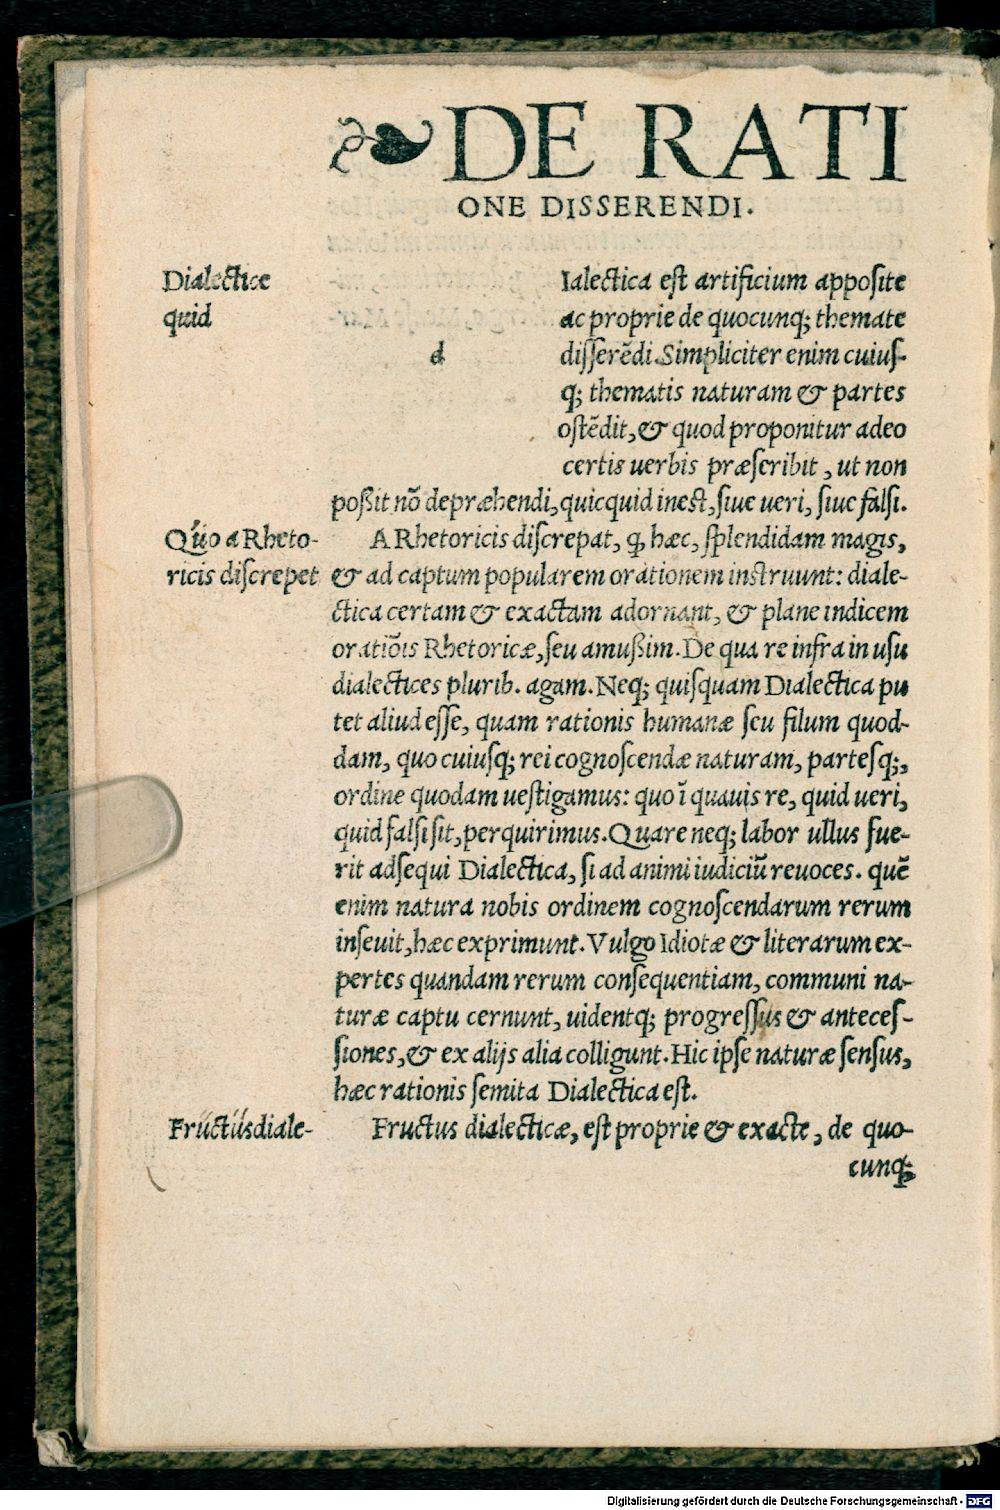 ❧DE RATI
ONE DISSERENDI.
Dialectice
quid
d
Ialectica est artificium apposite
ac proprie de quocunq; themate
disserēdi. Simpliciter enim cuius-
q; thematis naturam & partes
ostēdit, & quod proponitur adeo
certis uerbis præscribit, ut non
poßit nō depræhendi, quicquid inest, siue ueri, siue falsi.
Quo a Rheto-
ricis discrepet
A Rhetoricis discrepat, ꝙ hæc, splendidam magis,
& ad captum popularem orationem instruunt: diale-
ctica certam & exactam adornant, & plane indicem
oratiōis Rhetoricæ, seu amußim. De qua re infra in usu
dialectices plurib. agam. Neq; quisquam Dialectica pu
tet aliud esse, quam rationis humanæ seu filum quod-
dam, quo cuiusq; rei cognoscendæ naturam, partesq;,
ordine quodam uestigamus: quo ī quauis re, quid ueri,
quid falsi sit, perquirimus. Quare neq; labor ullus fue-
rit adsequi Dialectica, si ad animi iudiciū reuoces. quē
enim natura nobis ordinem cognoscendarum rerum
inseuit, hæc exprimunt. Vulgo Idiotæ & literarum ex-
pertes quandam rerum consequentiam, communi na-
turæ captu cernunt, uidentq; progressus & anteces-
siones, & ex alijs alia colligunt. Hic ipse naturæ sensus,
hæc rationis semita Dialectica est.
Fructus diale-
Fructus dialecticæ, est proprie & exacte, de quo-
cunq;
Digitalisierung gefördert durch die Deutsche Forschungsgemeinschaft - DFG